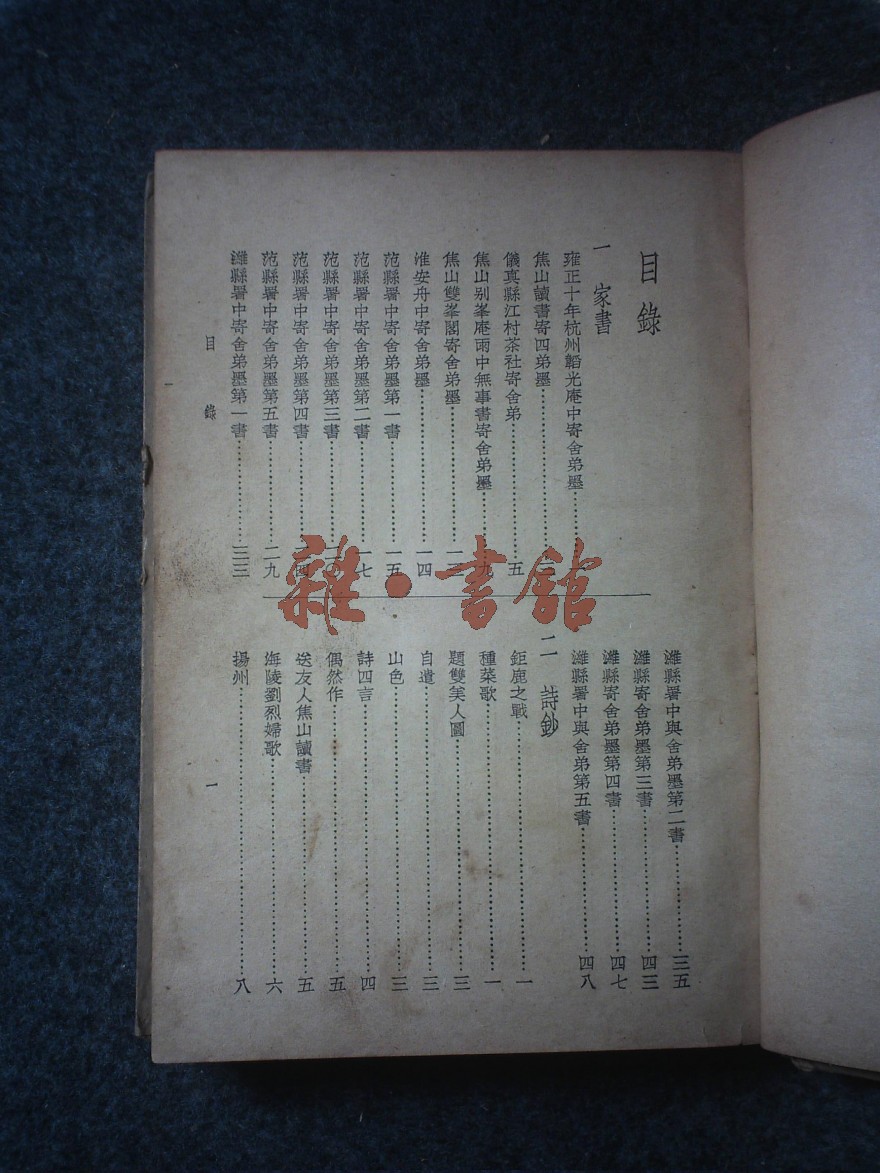 目錄
一 家書
雍正十年杭州韜光庵中寄舍弟墨
焦山讀書寄四弟墨
儀真縣江村茶社寄舍弟 五
焦山別峯庵雨中無事書寄舍弟墨 九
焦山雙峯閣寄舍弟墨
淮安舟中寄舍弟墨 一四
范縣署中寄舍弟墨第一書 一五
范縣署中寄舍弟墨第二書 一七
范縣署中寄舍弟墨第三書
范縣署中寄舍弟墨第四書
范縣署中寄舍弟墨第五書 二九
濰縣署中寄舍弟墨第一書 三三
濰縣署中與舍弟墨第二書 三五
濰縣寄舍弟墨第三書 四三
濰縣寄舍弟墨第四書 四七
濰縣署中與舍弟第五書 四八
二 詩鈔
鉅鹿之戰 一
種菜歌 一
題雙美人圖 三
自遣 三
山色 三
詩四言 四
偶然作 五
送友人焦山讀書 五
海陵劉烈婦歌 六
揚州 八
目錄
一
雜·書館